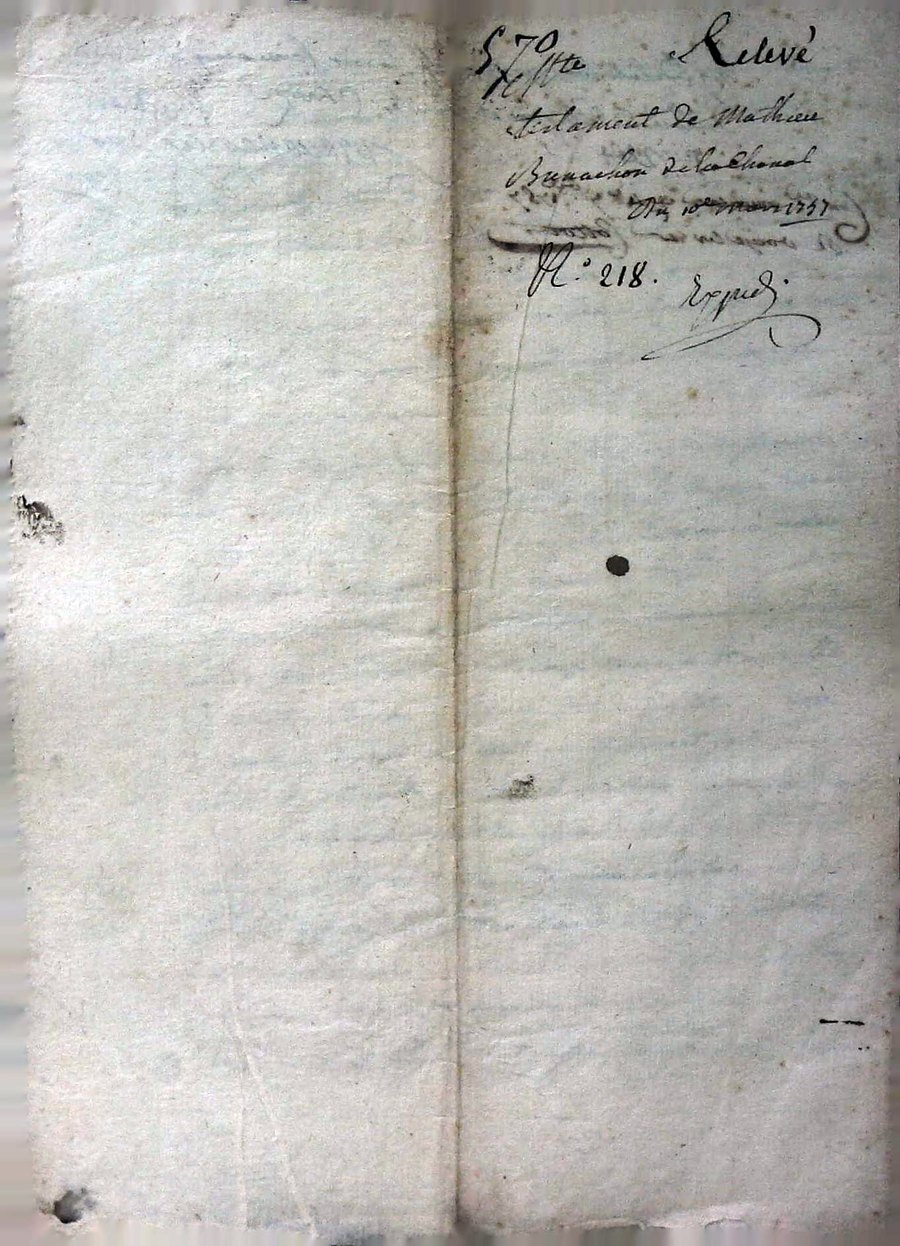 Relevé
testament de Mathieu
Brunachon de la Chanal
Du 10e mars 1757
N.º 218.
Expedi